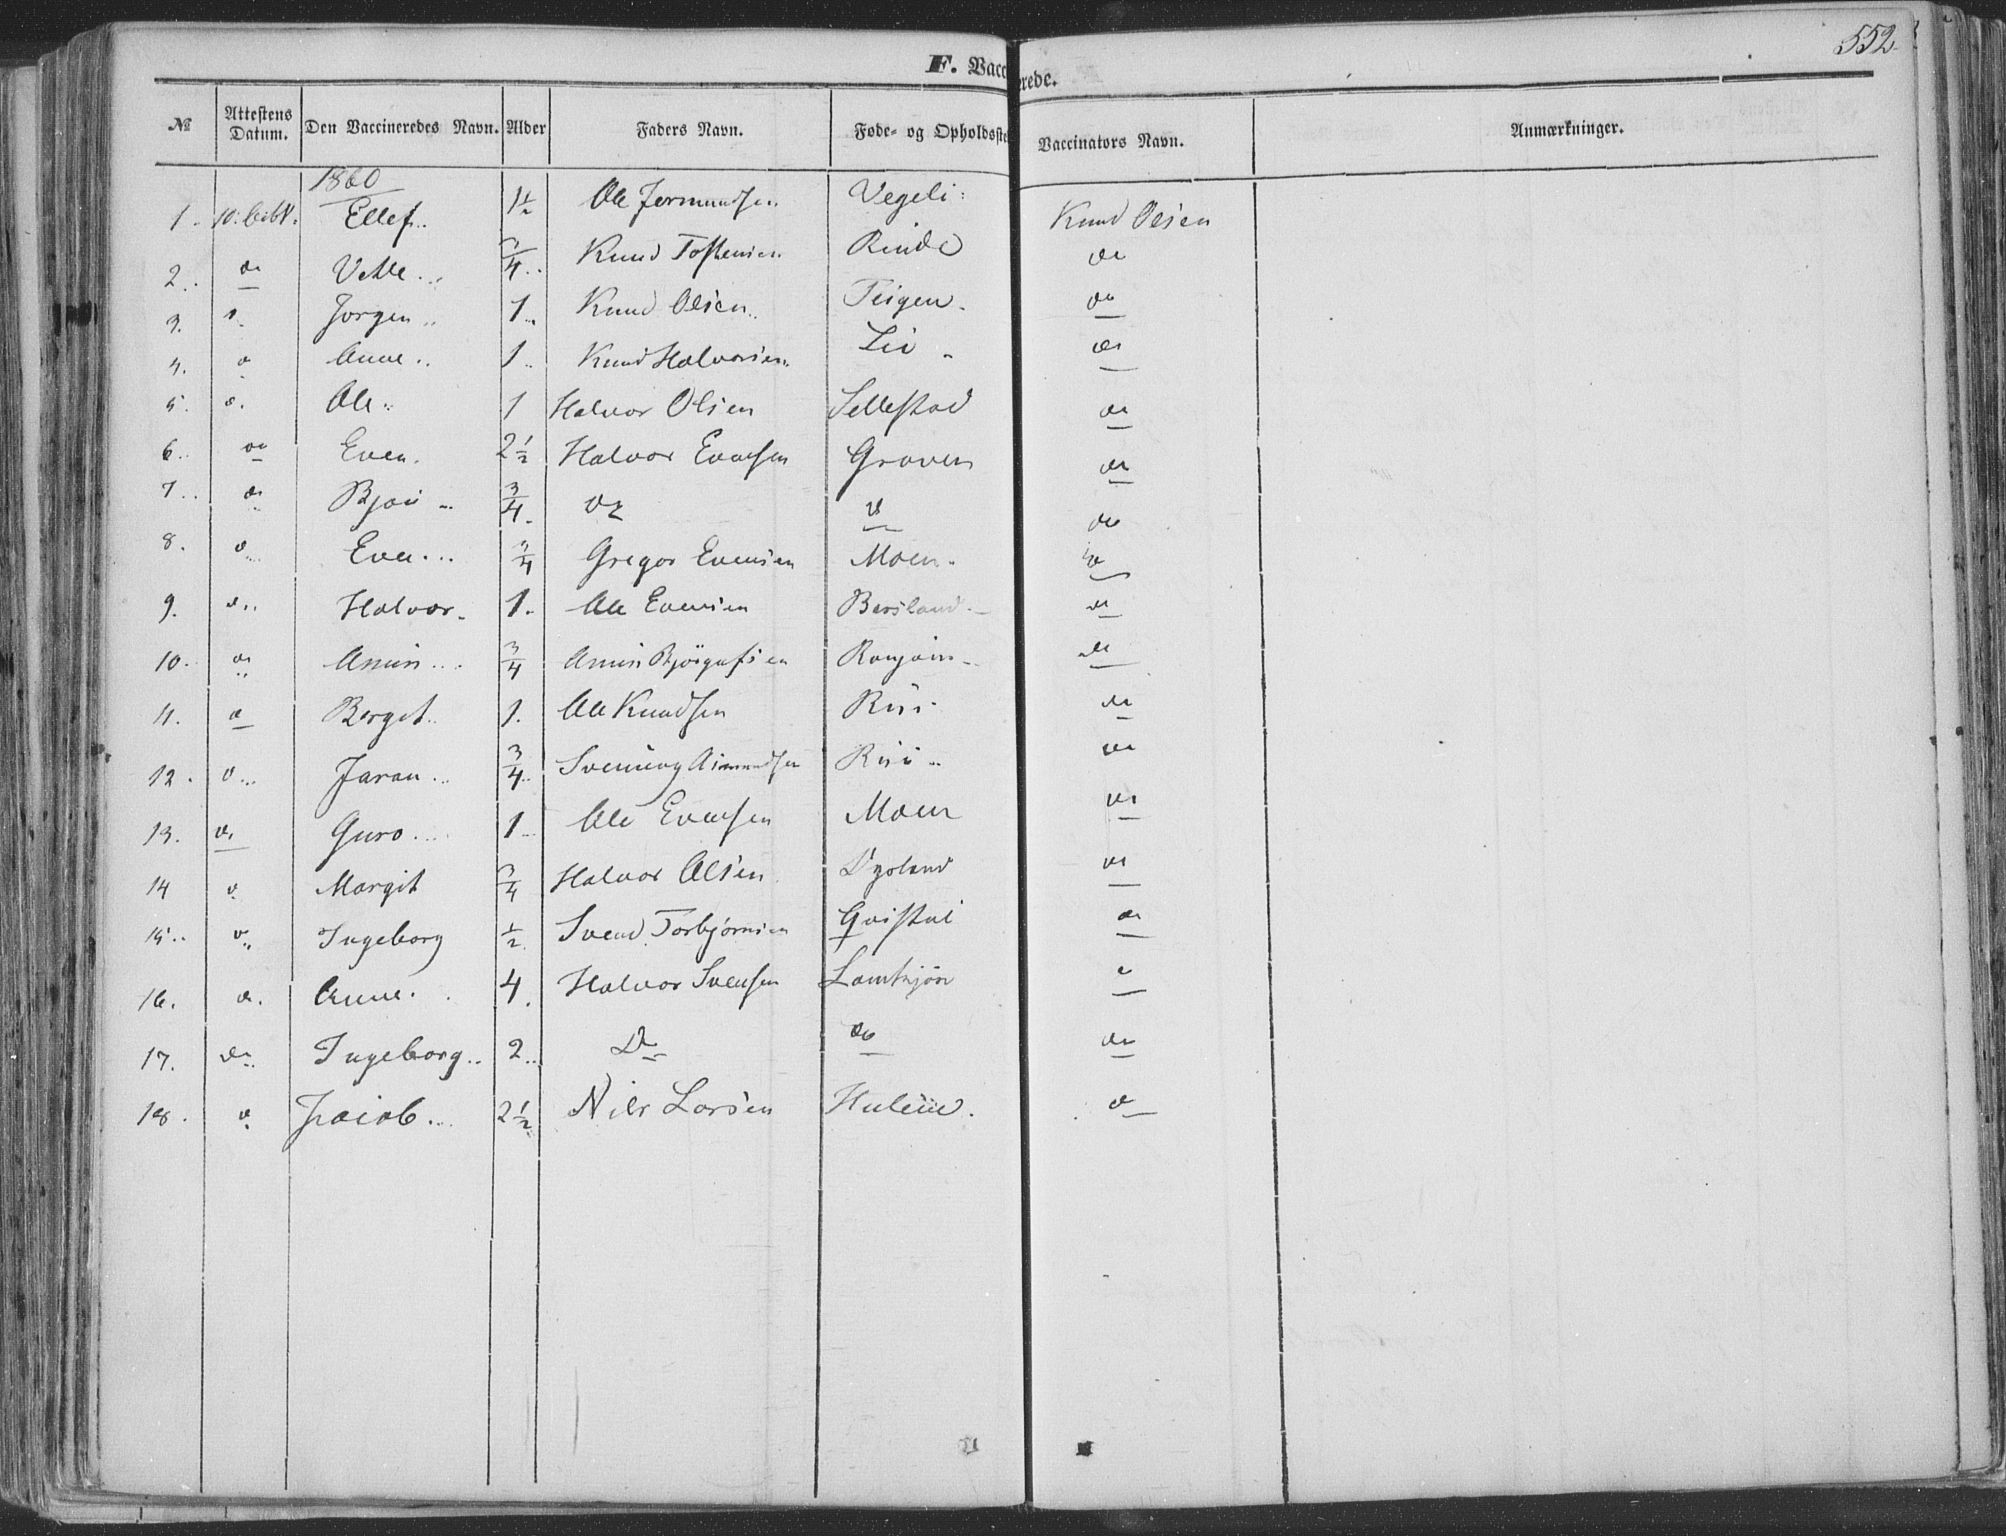 552.
F. Vaccinerede.
№ Attestens Datum. Den Vaccineredes Navn. Alder Faders Navn. Føde- og Opholdsste Vaccinators Navn. Anmærkninger.
1860
1. 10. Octbr. Ellef.. 1½ Ole Jermundsen Vegeli: Knud Olsen
2.. do Vetle... ¾.. Knud Tostensen Rinde do
3. Jorgen.. 1.. Knud Olsen.. Teigen. do
4. Anne.. 1.. Knud Halvorsen. Lio do
5. Ole.. 1 Halvor Olsen Sellestad do
6.. do Even. 2½ Halvor Evensen Groven do
7.. do ¾. do do do
8. Even... ¾ Gregor Evensen Moen. do
9. Halvor. 1. Ole Evensen do
10. do ¾ do
11. Bergit.. 1. Ole Knudsen Riis. do
12. Jaran.. ¾.. Svenning Riis.. do
13. do Guro.... 1.. Ole Evensen Moen do
14 Margit ¾ Halvor Olsen do
15.. Ingeborg ½. Svend Torbjørnsen Qvistul do
16. do. Anne. 4. Halvor Svensen
17. do Ingeborg.. 2.. Do do do
18. Jacob... 2½ Nils Larsen